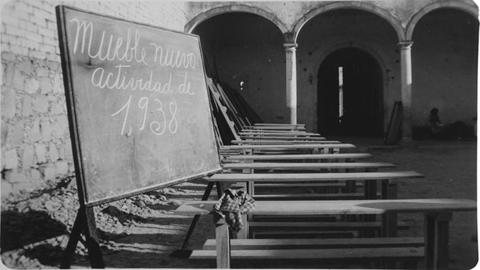 Mueble nuevo
actividad de
1,938